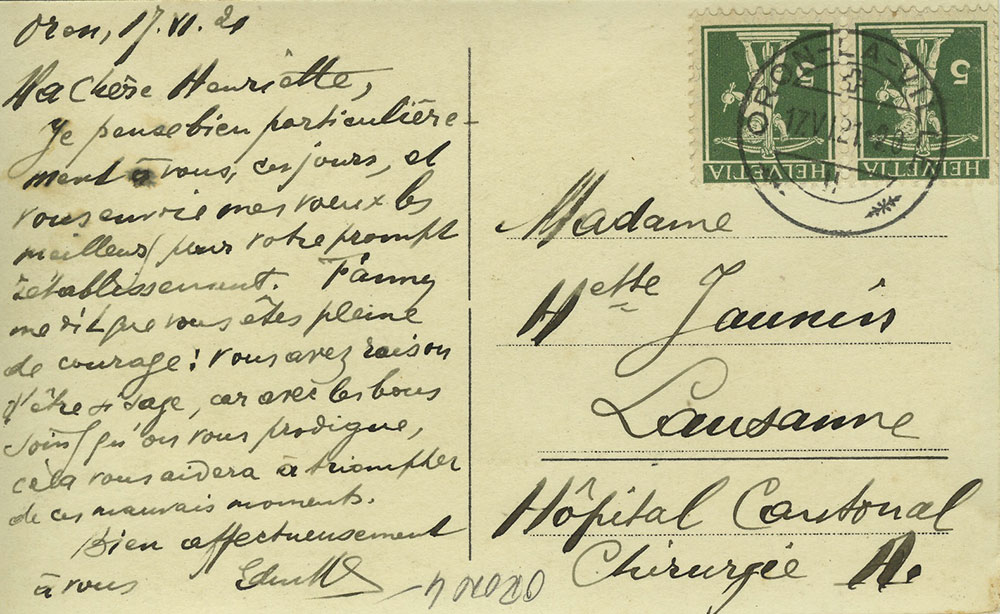 Oron, 17. VI. 21
Ma chère Henriette,
Je pense bien particulière-
ment à vous, ces jours, et
vous envoie mes voeux les
meilleurs pour votre prompt
rétablissement. Fanny
me dit que vous êtes pleine
de courage! Vous avez raison
d'être si sage, car avec les bons
soins qu'on vous prodigue,
cela vous aidera à triompher
de ces mauvais moments.
Bien affectueusement
à vous
ORON-LA-VILLE
17.VI.21
5
HELVETIA
5
HELVETIA
Madame
Hette Jaunin
Lausanne
Hôpital Cantonal
Chirurgie H.